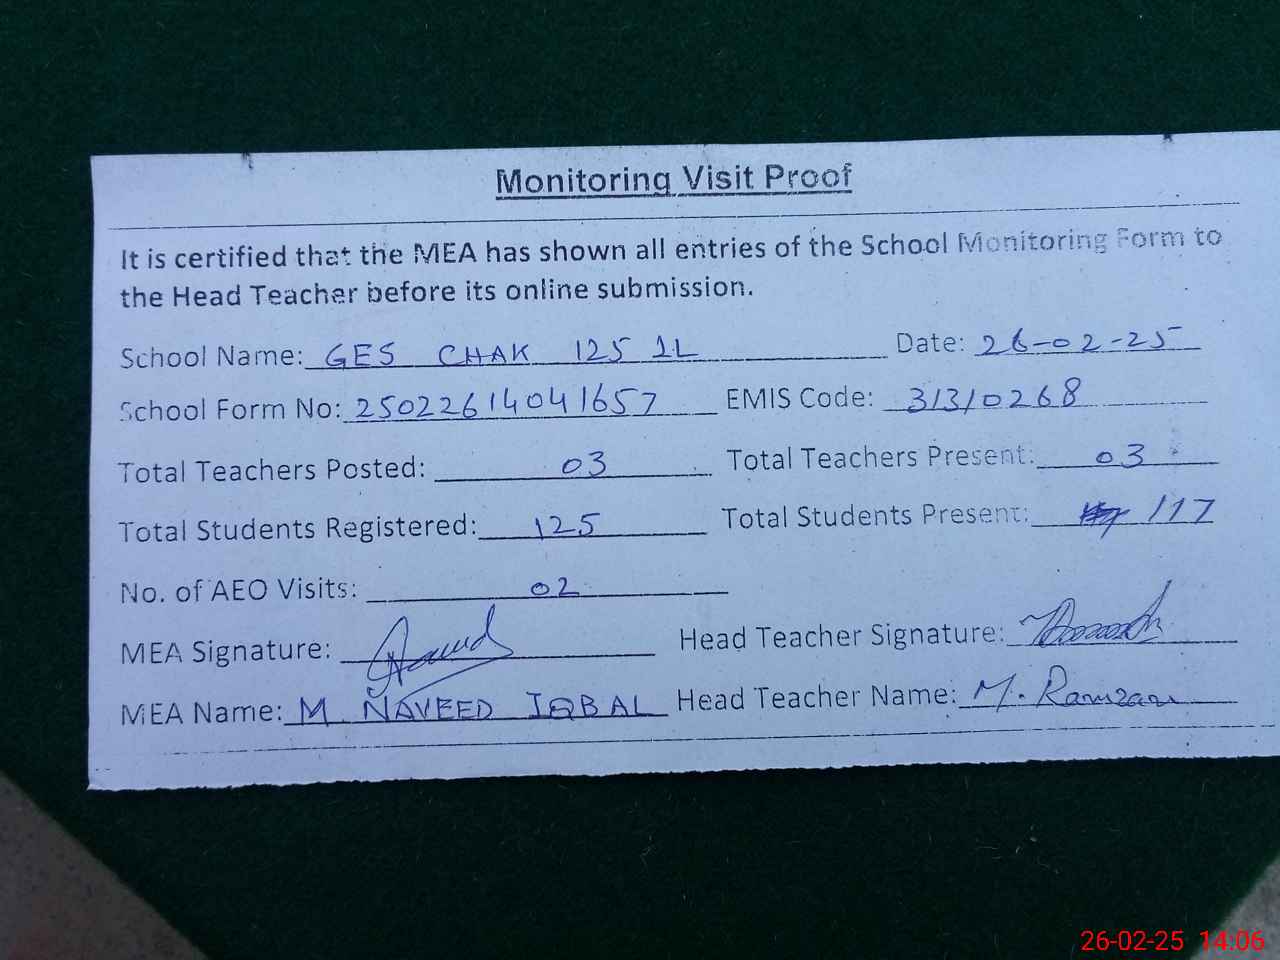 Monitoring Visit Proof
It is certified that the MEA has shown all entries of the School Monitoring Form to
the Head Teacher before its online submission.
School Name: GES CHAK 125 1L Date: 26-02-25
School Form No: 25022614041657 EMIS Code: 31310268
Total Teachers Posted: 03 Total Teachers Present: 03
Total Students Registered: 125 Total Students Present: 117
No. of AEO Visits: 02
MEA Signature: Head Teacher Signature:
MEA Name: M NAVEED IQBAL Head Teacher Name: M. Ramzan
26-02-25 14:06